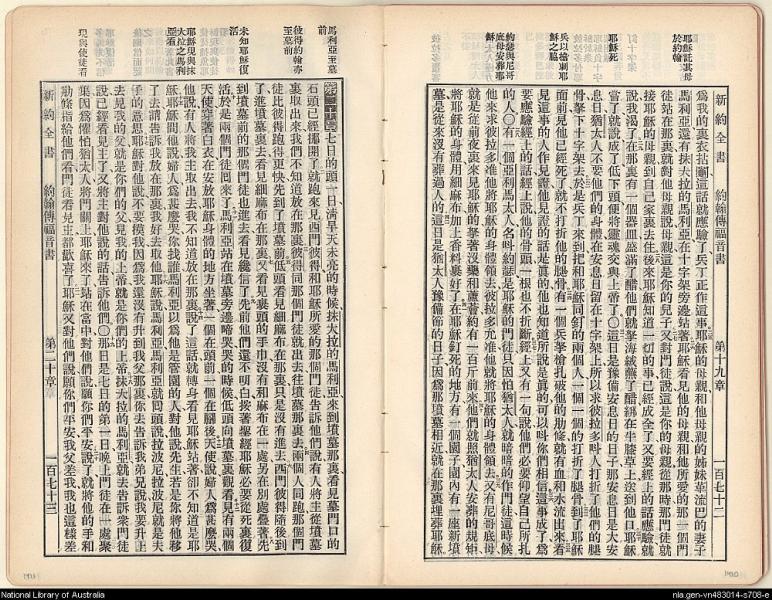 耶穌託其母
於約翰
耶穌死
兵以槍刺耶
穌之脇
約瑟與尼哥
底母安葬耶
穌
新約全書
約翰傳福音書
第十九章
一百七十二
為我的裏衣拈鬮這話就應驗了兵丁正作這事耶穌的母親和他母親的姊妹革流巴的妻子
馬利亞還有抹大拉的馬利亞在十字架旁邊站著耶穌看見他的母親和他所愛的那一個門
徒站在那裏就對他母親說母親這是你的兒子又對門徒說這是你的母親從那時那門徒
接耶穌的母親到自己家裏去住後來耶穌知道一切的事已經成全了又要經上的話應驗就
說我渴了在那裏有一個器皿盛滿了醋他們就拏海絨蘸了醋綁在牛膝草上送到他口耶穌
嘗了就說成了低下頭便將靈魂交與上帝了〇這日是豫備安息日的日子那安息日是大安
息日猶太人不要他們的身體在安息日留在十字架上所以求彼拉多叫人打折了他們的腿
骨拏下十字架去於是兵丁來到把和耶穌同釘的兩個人一個一個的打折了腿骨到了耶穌
面前見他已經死了就不打折他的腿骨有一個兵拏槍扎破他的肋條就有血和水流出來看
見這事的人作見證他見證的話是真的他也知道所說是真的可以叫你們相信這事成了為
要應驗經上的話經上說他的骨頭一根也不折斷經上又有一句說他們必要仰望自己所扎
的人〇有一個亞利馬太人名叫約瑟是耶穌的門徒只因怕猶太人就暗暗的作門徒這時候
他來求彼拉多准他將耶穌的身體領去彼拉多允准他就將耶穌的身體領去又有尼哥底母
就是從前夜裏來見耶穌的拏著沒藥和蘆薈約有一百斤前來他們就照猶太人安葬的規矩
將耶穌的身體用細麻布加上香料裹好了在耶穌釘死的地方有一個園子園內有一座新墳
墓是從來沒有葬過人的這日是猶太人豫備節的日子因為那墳墓相近就在那裏埋葬耶穌
馬利亞至墓
前
彼得約翰亦
至墓前
未知耶穌復
活
耶穌現與抹
大拉之馬利
亞看
現與使徒看
第二十章七日的頭一日清早天未亮的時候抹大拉的馬利亞來到墳墓那裏看見墓門口的
石頭已經挪開了就跑來見西門彼得和耶穌所愛的那個門徒告訴他們說有人將主從墳墓
裏取出來我們不知道放在那裏彼得同那個門徒就出去往墳墓那裏去兩個人同跑那個門
徒比彼得跑得更快先到了墳墓前低頭看見細麻布在那裏只是沒有進去西門彼得隨後到
了進墳墓裏去看見細麻布放在那裏又看見裹頭的手巾沒有和麻布在一處另在別處疊著先
到墳墓前的那個門徒也進去看見纔信了先前他們還不明白按著聖經耶穌必要從死裏復
活於是兩個門徒回來了馬利亞站在墳墓旁邊啼哭哭的時候低頭向墳墓裏觀看見有兩個
天使穿著白衣在安放耶穌身體的地方坐著一個在頭前一個在腳後天使說婦人為甚麼哭
他說有人將我主取出去我不知道放在那裏說了這話就轉身看見耶穌站著卻不知道是耶
穌耶穌問他說婦人為甚麼哭你找誰馬利亞以為他是管園的人對他說先生若是你將他移
了去請告訴我放在那裏我好去取他耶穌說馬利亞馬利亞就回頭說拉波尼拉波尼就是夫
子的意思耶穌對他說不要摸我因為我還沒有升到我父那裏你去告訴我弟兄說我要升上
去見我的父就是你們的父見我的上帝就是你們的上帝抹大拉的馬利亞就去告訴眾門徒
說已經看見主了又將主對他說的話告訴他們〇那日是七日的第一日晚上門徒在一處聚
集因為懼怕猶太人將門關上耶穌來了站在當中對他們說願你們平安說了就將他的手和
肋條指給他們看門徒看見主都歡喜了耶穌又對他們說願你們平安我父差我我也這樣差
新約全書
約翰傳福音書
第二十章
一百七十三
National Library of Australia
nla.gen-vn483014-s708-e